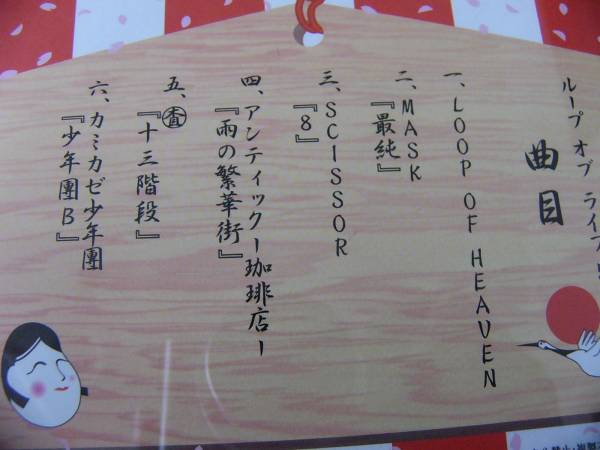 ループ オブ ライフ
曲目
一、LOOP OF HEAVEN
二、MASK
『最純』
三、SCISSOR
『8』
四、アンティックー珈琲店ー
『雨の繁華街』
五、㊚
『十三階段』
六、カミカゼ少年團
『少年團B』